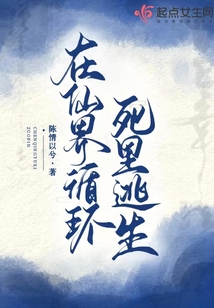 起点女生网
在仙界循环
死里逃生
陈情以兮·著